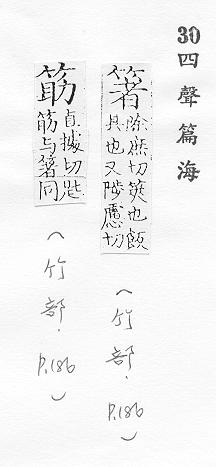 30四聲篇海
箸 除庶切筴也飯
具也又陟慮切
(竹部. P.186)
筯 直據切匙
筯与箸同
(竹部. P.186)